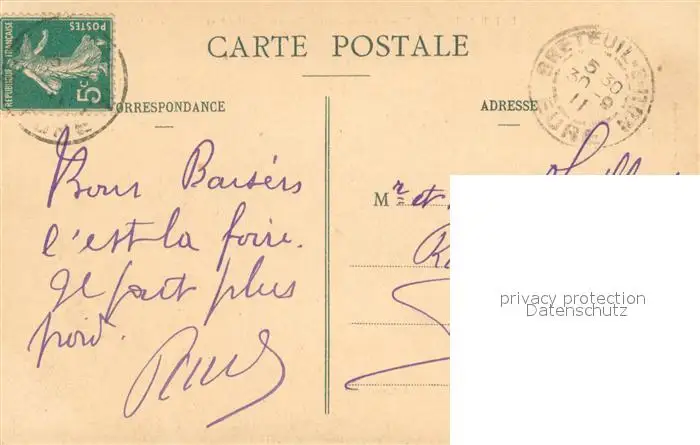 REPUBLIQUE FRANÇAISE
POSTES
5c
CARTE POSTALE
BRETEUIL-S-ITON
5 30
30 -9
11
EURE
CORRESPONDANCE
ADRESSE
Bons Baisers
c'est la foire.
Il fait plus
froid.
Mr et
privacy protection
Datenschutz